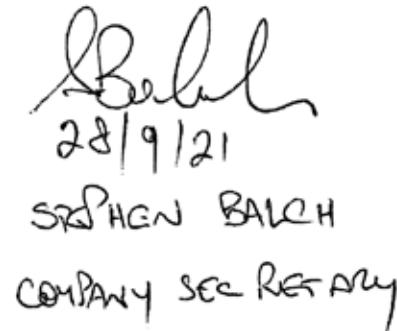 SBalch
28/9/21
STEPHEN BALCH
COMPANY SECRETARY